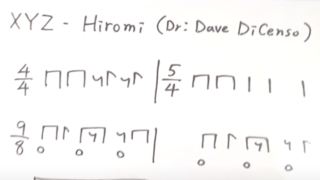 XYZ - Hiromi (Dr: Dave DiCenso)
4/4 5/4
9/8